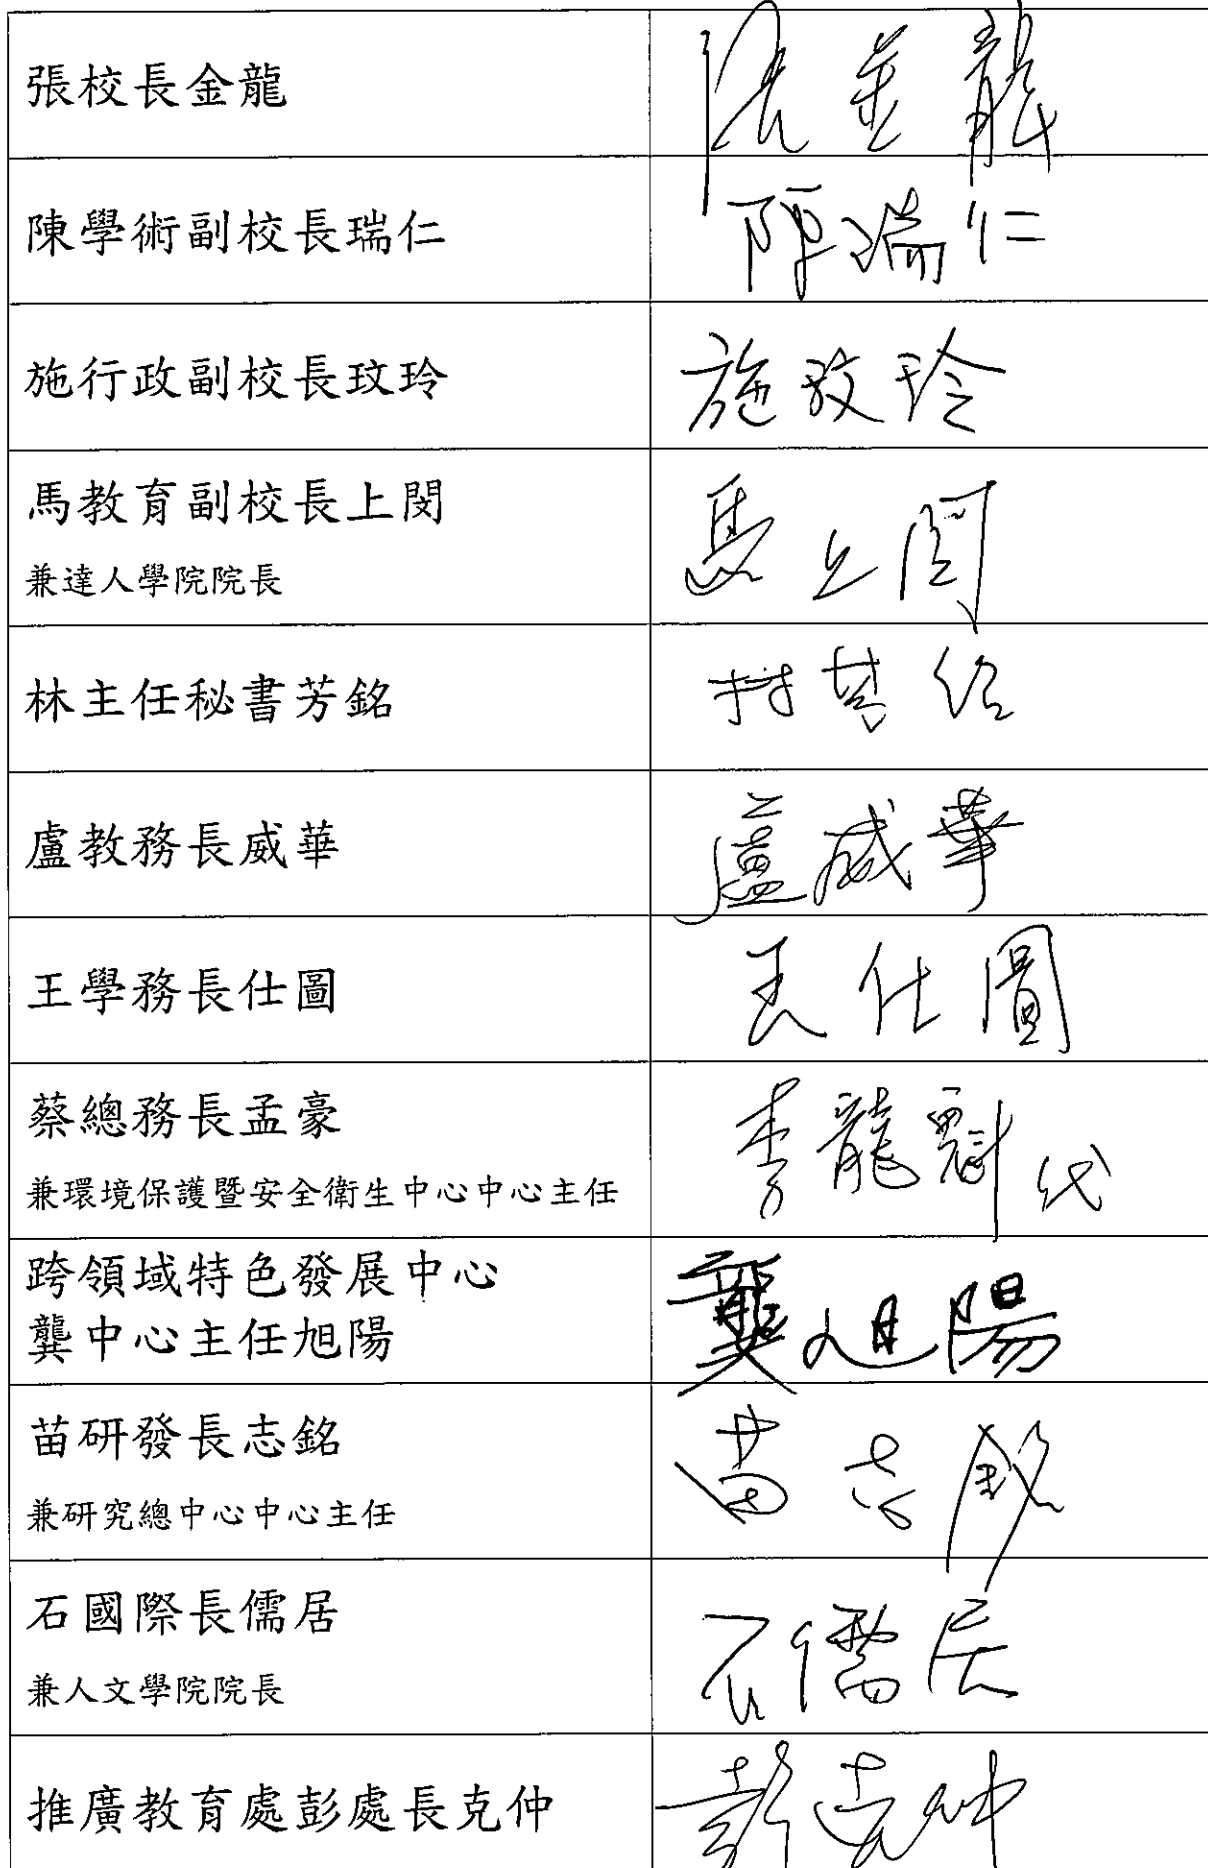 張校長金龍
張金龍
陳學術副校長瑞仁
陳瑞仁
施行政副校長玟玲
施玟玲
馬教育副校長上閔
兼達人學院院長
馬上閔
林主任秘書芳銘
盧教務長威華
盧威華
王學務長仕圖
王仕圖
蔡總務長孟豪
兼環境保護暨安全衛生中心中心主任
李龍 代
跨領域特色發展中心
龔中心主任旭陽
龔旭陽
苗研發長志銘
兼研究總中心中心主任
苗志銘
石國際長儒居
兼人文學院院長
石儒居
推廣教育處彭處長克仲
彭克仲